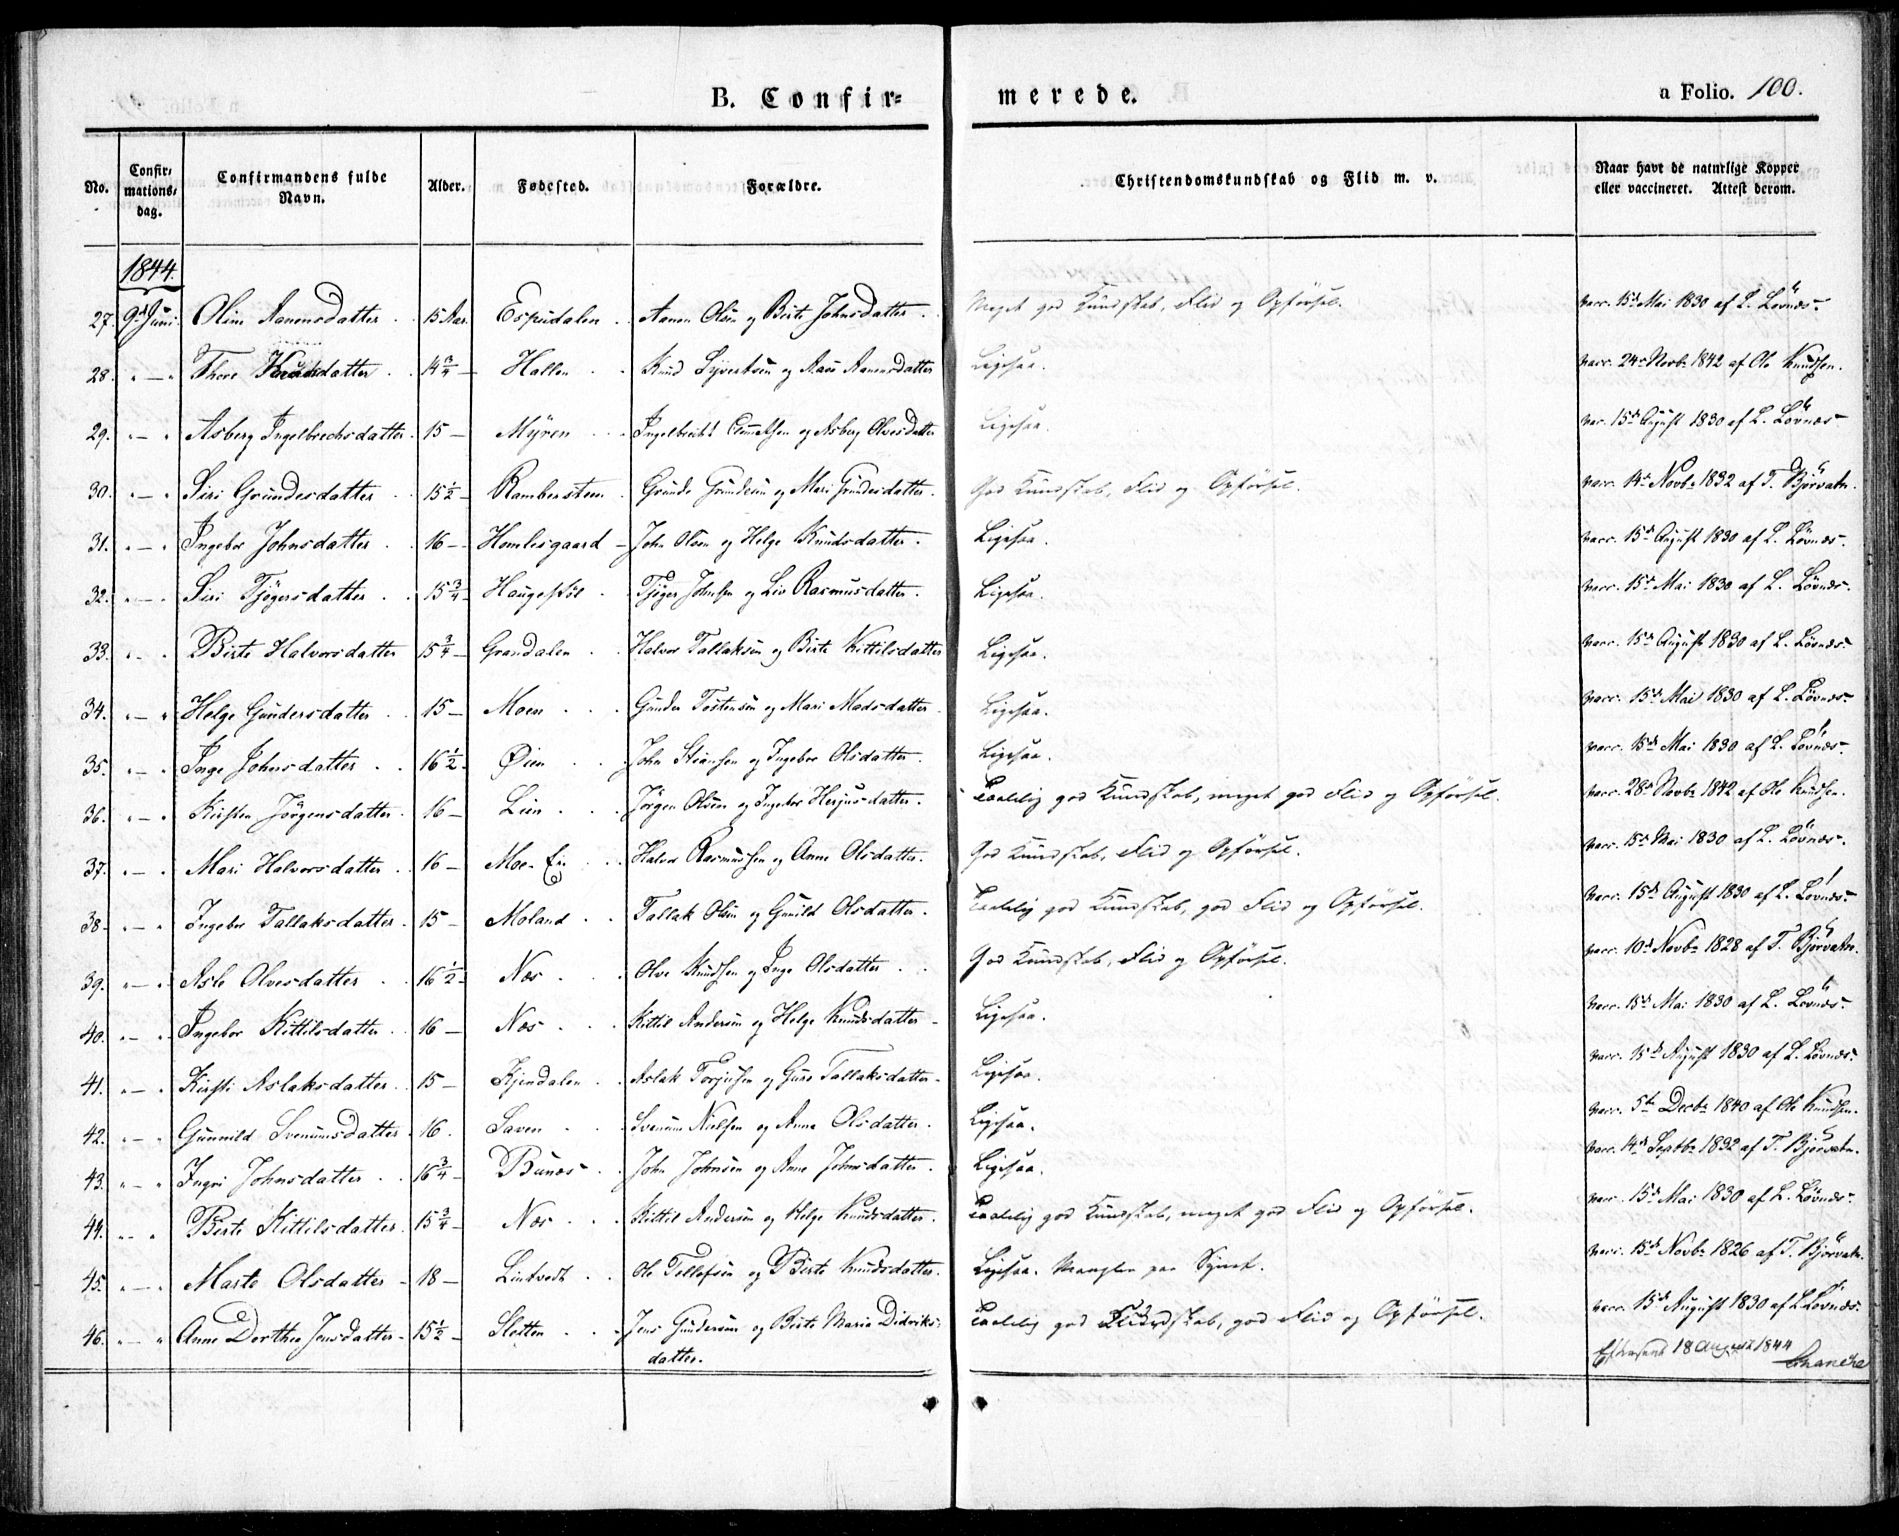 B. Confir=merede.
a Folio. 100.
No. | Confirmations-dag. | Confirmandens fulde Navn. | Alder. | Fødested. | Forældre. | Christendomskundskab og Flid m. v. | Naar havt de naturlige Kopper eller vaccineret. Attest derom.
1844.
27. 9d Juni. Oline Aanensdatter 15 Aar. Espedalen Aanen Olsen og Birte Johnsdatter. Meget god Kundskab, Flid og Opförsel. vacc. 15d Mai 1830 af L. Lövnæs.
28. " — " Thore Knudsdatter 14 3/4 — Hallen Knud Syvertsen og Aase Aanensdatter Ligesaa. vacc. 24d Novbr 1842 af Ole Knudsen.
29. " — " Asberg Ingelbrechsdatter 15 — Myren Ingelbrecht og Asberg Olvesdatter Ligesaa. vac. 15d August 1830 af L. Lövnæs
30. " — " Siri Grundesdatter 15 1/2 — Rambersteen Grunde Grundesen og Mari Grundesdatter. God Kundskab, Flid og Opförsel. vacc. 14d Novbr 1832 af T. Björvatn.
31. " — " Ingebor Johnsdatter 16 — Homlesgaard John Olsen og Helge Knudsdatter. Ligesaa. vacc. 15d August 1830 af L. Lövnæs.
32. " — " Siri Tjögersdatter 15 3/4 Haugestöl Tjöger Johnsen og Liv Rasmusdatter. Ligesaa. vacc. 15d Mai 1830 af L. Lövnæs.
33. " — " Birte Halvorsdatter 15 3/4 — Grandalen Halvor Tallaksen og Birte Kittilsdatter Ligesaa. vacc. 15d August 1830 af L. Lövnæs.
34. " — " Helge Gundersdatter 15 — Moen Gunder Tostensen og Mari Madsdatter Ligesaa. vacc. 15d Mai 1830 af L. Lövnæs
35. " — " Inge Johnsdatter 16 1/2 Øien John og Ingebor Olsdatter. Ligesaa. vacc. 15d Mai 1830 af L. Lövnæs.
36. " — " Kirsten Jörgensdatter 16 — Lien Jörgen Olsen og Ingebor Herjusdatter. Taalelig god Kundskab, meget god Flid og Opförsel. vacc. 28d Novbr 1842 af Ole Knudsen.
37. " — " Mari Halvorsdatter 16 — Moe Halvor Rasmussen og Anne Olsdatter. God Kundskab, Flid og Opförsel. vacc. 15d Mai 1830 af L. Lövnæs.
38. " — " Ingebor Tallaksdatter 15 — Moland Tallak Olsen og Gunild Olsdatter. Taalelig god Kundskab, god Flid og Opförsel. vacc. 15d August 1830 af L. Lövnæs.
39. " — " Asle Olvesdatter 16 1/2 — Næs Olve Knudsen og Inge Olsdatter God Kundskab, Flid og Opförsel. vacc. 10d Novbr 1828 af T. Björvatn.
40. " — " Ingebor Kittilsdatter 16 — Næs Kittil Andersen og Helge Knudsdatter Ligesaa. vacc. 15d Mai 1830 af L. Lövnæs.
41. " — " Kirsti Aslaksdatter 15 — Kjendalen Aslak Torjusen og Guro Tallaksdatter Ligesaa. vacc. 15d August 1830 af L. Lövnæs.
42. " — " Gunnild Svenumsdatter 16. Saven Svenum Nielsen og Anne Olsdatter. Ligesaa. vacc. 5te Decbr 1840 af Ole Knudsen.
43. " — " Ingri Johnsdatter 16 3/4 — Bunæs John Johnsen og Anne Johnsdatter. Ligesaa. vacc. 14d Septbr 1832 af T. Björvatn.
44. " — " Birte Kittilsdatter 15 3/4 — Næs Kittil Andersen og Helge Knudsdatter. Taalelig god Kundskab, meget god Flid og Opförsel. vacc. 15d Mai 1830 af L. Lövnæs.
45. " — " Marte Olsdatter 18 — Lindtvedt Ole Tellefsen og Birte Knudsdatter. Ligesaa. Mangler paa Synet. vacc. 15d Novbr 1826 af T. Björvatn.
46. " — " Anne Dorthea Jensdatter 15 1/2 — Sletten Jens Gundersen og Birte Marie Didriks- Taalelig god Kundskab, god Flid og Opförsel. vacc. 15d August 1830 af L. Lövnæs.
datter.
Efterseet 18 August 1844